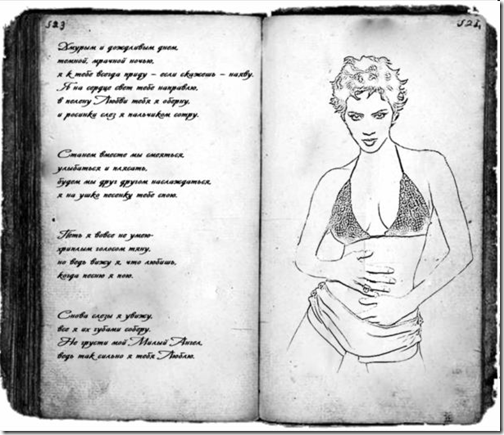 523
524
Хмурым и дождливым днем,
темной, мрачной ночью,
я к тебе всегда приду – если скажешь – наяву.
Я на сердце свет тебе направлю,
в пелену Любви тебя я оберну,
и росинки слез я пальчиком сотру.
Станем вместе мы смеяться,
улыбаться и плясать,
будем мы друг другом наслаждаться,
я на ушко песенку тебе спою.
Петь я вовсе не умею-
хриплым голосом тяну,
но ведь вижу я, что любишь,
когда песню я пою.
Снова слезы я увижу,
все я их губами соберу.
Не грусти мой Милый Ангел,
ведь так сильно я тебя Люблю.